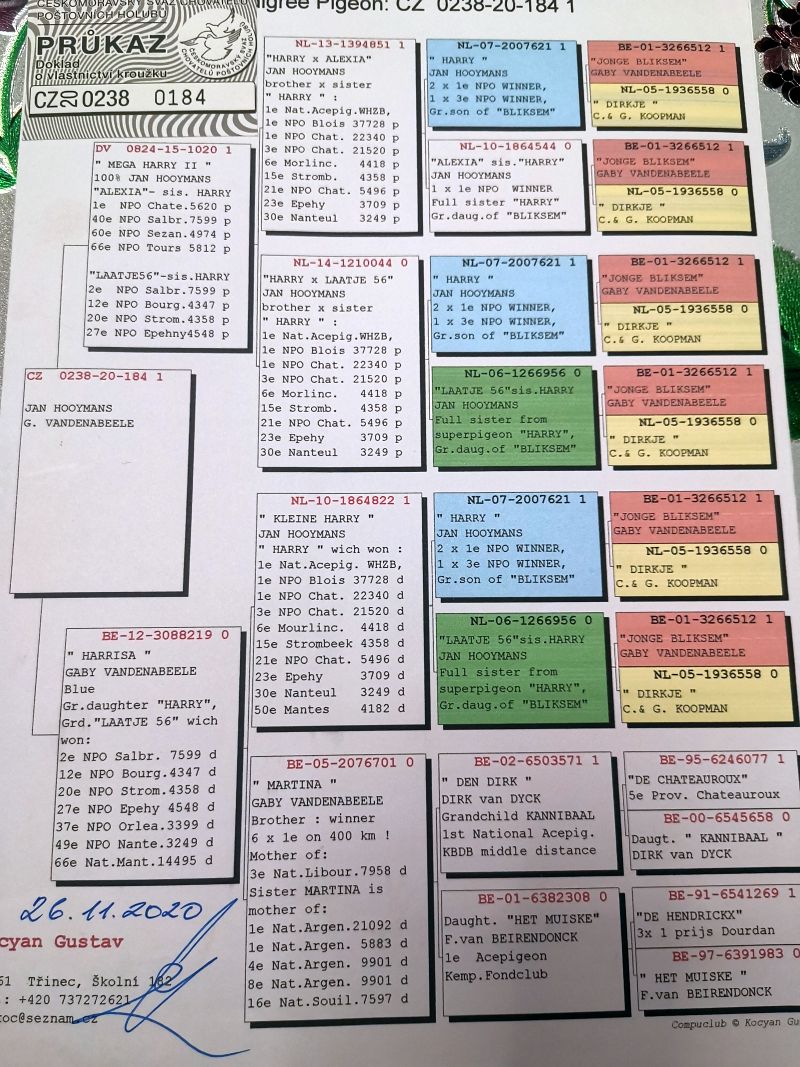 ČESKOMORAVSKÝ SVAZ CHOVATELŮ
POŠTOVNÍCH HOLUBŮ
PRŮKAZ
Doklad
o vlastnictví kroužku
ČESKOMORAVSKÝ SVAZ CHOVATELŮ POŠTOVNÍCH HOLUBŮ
CZ 20 0238 0184
digree Pigeon: CZ 0238-20-184 1
DV 0824-15-1020 1
" MEGA HARRY II "
100% JAN HOOYMANS
"ALEXIA"- sis. HARRY
1e NPO Chate.5620 p
40e NPO Salbr.7599 p
60e NPO Sezan.4974 p
66e NPO Tours 5812 p
"LAATJE56"-sis.HARRY
2e NPO Salbr.7599 p
12e NPO Bourg.4347 p
20e NPO Strom.4358 p
27e NPO Epehny4548 p
CZ 0238-20-184 1
JAN HOOYMANS
G. VANDENABEELE
BE-12-3088219 0
" HARRISA "
GABY VANDENABEELE
Blue
Gr.daughter "HARRY",
Grd."LAATJE 56" wich
won:
2e NPO Salbr. 7599 d
12e NPO Bourg.4347 d
20e NPO Strom.4358 d
27e NPO Epehy 4548 d
37e NPO Orlea.3399 d
49e NPO Nante.3249 d
66e Nat.Mant.14495 d
NL-13-1394851 1
"HARRY x ALEXIA"
JAN HOOYMANS
brother x sister
" HARRY " :
1e Nat.Acepig.WHZB,
1e NPO Blois 37728 p
1e NPO Chat. 22340 p
3e NPO Chat. 21520 p
6e Morlinc. 4418 p
15e Stromb. 4358 p
21e NPO Chat. 5496 p
23e Epehy 3709 p
30e Nanteul 3249 p
NL-14-1210044 0
"HARRY x LAATJE 56"
JAN HOOYMANS
brother x sister
" HARRY " :
1e Nat.Acepig.WHZB,
1e NPO Blois 37728 p
1e NPO Chat. 22340 p
3e NPO Chat. 21520 p
6e Morlinc. 4418 p
15e Stromb. 4358 p
21e NPO Chat. 5496 p
23e Epehy 3709 p
30e Nanteul 3249 p
NL-10-1864822 1
" KLEINE HARRY "
JAN HOOYMANS
" HARRY " wich won :
1e Nat.Acepig. WHZB,
1e NPO Blois 37728 d
1e NPO Chat. 22340 d
3e NPO Chat. 21520 d
6e Mourlinc. 4418 d
15e Strombeek 4358 d
21e NPO Chat. 5496 d
23e Epehy 3709 d
30e Nanteul 3249 d
50e Mantes 4182 d
BE-05-2076701 0
" MARTINA "
GABY VANDENABEELE
Brother : winner
6 x 1e on 400 km !
Mother of:
3e Nat.Libour.7958 d
Sister MARTINA is
mother of:
1e Nat.Argen.21092 d
1e Nat.Argen. 5883 d
4e Nat.Argen. 9901 d
8e Nat.Argen. 9901 d
16e Nat.Souil.7597 d
NL-07-2007621 1
" HARRY "
JAN HOOYMANS
2 x 1e NPO WINNER,
1 x 3e NPO WINNER,
Gr.son of "BLIKSEM"
NL-10-1864544 0
"ALEXIA" sis."HARRY"
JAN HOOYMANS
1 x 1e NPO WINNER
Full sister "HARRY"
Gr.daug.of "BLIKSEM"
NL-07-2007621 1
" HARRY "
JAN HOOYMANS
2 x 1e NPO WINNER,
1 x 3e NPO WINNER,
Gr.son of "BLIKSEM"
NL-06-1266956 0
"LAATJE 56"sis.HARRY
JAN HOOYMANS
Full sister from
superpigeon "HARRY",
Gr.daug.of "BLIKSEM"
NL-07-2007621 1
" HARRY "
JAN HOOYMANS
2 x 1e NPO WINNER,
1 x 3e NPO WINNER,
Gr.son of "BLIKSEM"
NL-06-1266956 0
"LAATJE 56"sis.HARRY
JAN HOOYMANS
Full sister from
superpigeon "HARRY",
Gr.daug.of "BLIKSEM"
BE-02-6503571 1
" DEN DIRK "
DIRK van DYCK
Grandchild KANNIBAAL
1st National Acepig.
KBDB middle distance
BE-01-6382308 0
Daught. "HET MUISKE"
F.van BEIRENDONCK
1e Acepigeon
Kemp.Fondclub
BE-01-3266512 1
"JONGE BLIKSEM"
GABY VANDENABEELE
NL-05-1936558 0
" DIRKJE "
C.& G. KOOPMAN
BE-01-3266512 1
"JONGE BLIKSEM"
GABY VANDENABEELE
NL-05-1936558 0
" DIRKJE "
C.& G. KOOPMAN
BE-01-3266512 1
"JONGE BLIKSEM"
GABY VANDENABEELE
NL-05-1936558 0
" DIRKJE "
C.& G. KOOPMAN
BE-01-3266512 1
"JONGE BLIKSEM"
GABY VANDENABEELE
NL-05-1936558 0
" DIRKJE "
C.& G. KOOPMAN
BE-01-3266512 1
"JONGE BLIKSEM"
GABY VANDENABEELE
NL-05-1936558 0
" DIRKJE "
C.& G. KOOPMAN
BE-01-3266512 1
"JONGE BLIKSEM"
GABY VANDENABEELE
NL-05-1936558 0
" DIRKJE "
C.& G. KOOPMAN
BE-95-6246077 1
"DE CHATEAUROUX"
5e Prov. Chateauroux
BE-00-6545658 0
Daugt. " KANNIBAAL "
DIRK van DYCK
BE-91-6541269 1
"DE HENDRICKX"
3x 1 prijs Dourdan
BE-97-6391983 0
" HET MUISKE "
F.van BEIRENDONCK
26.11.2020
cyan Gustav
61 Třinec, Školní 182
.: +420 737272621
toc@seznam.cz
Compuclub © Kocyan Gu